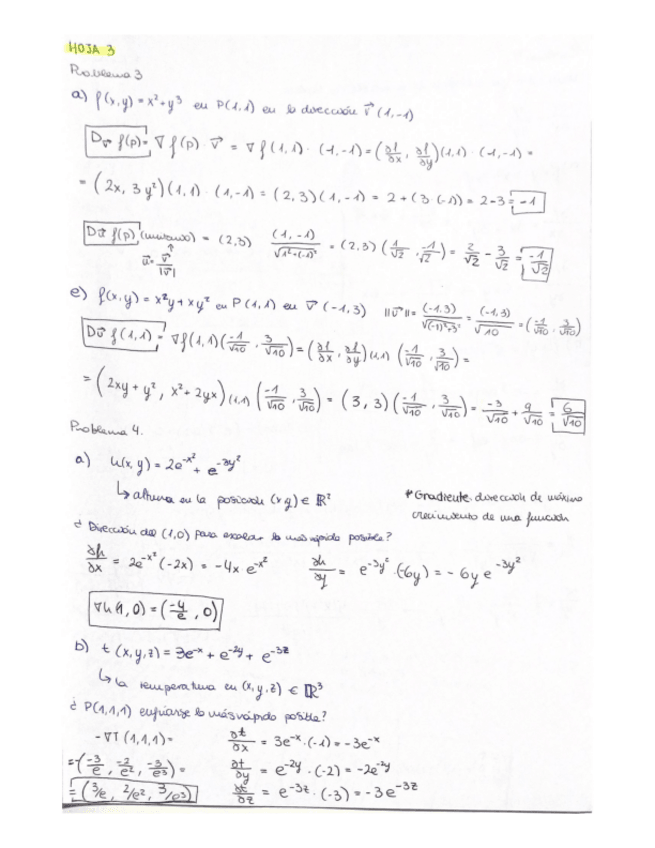 HOJA 3
Problema 3
a) f(x,y) = x² + y³ en P(1,1) en la dirección v⃗ (1,-1)
D_v⃗ f(p) = ∇f(p) · v⃗ = ∇f(1,1) · (1,-1) = (∂f/∂x, ∂f/∂y)(1,1) · (1,-1) =
= (2x, 3y²)(1,1) · (1,-1) = (2,3)(1,-1) = 2 + (3·(-1)) = 2-3 = -1
D_u⃗ f(p) (unitario) = (2,3) (1,-1)/√(1²+(-1)²) = (2,3) (1/√2, -1/√2) = 2/√2 - 3/√2 = -1/√2
u⃗ = v⃗/|v⃗|
e) f(x,y) = x²y + xy² en P(1,1) en v⃗ (-1,3) ||v⃗|| = (-1,3)/√((-1)²+3²) = (-1,3)/√10 = (-1/√10, 3/√10)
D_v⃗ f(1,1) = ∇f(1,1)(-1/√10, 3/√10) = (∂f/∂x, ∂f/∂y)(1,1) (-1/√10, 3/√10) =
= (2xy + y², x² + 2yx)(1,1) (-1/√10, 3/√10) = (3,3)(-1/√10, 3/√10) = -3/√10 + 9/√10 = 6/√10
Problema 4.
a) h(x,y) = 2e^-x² + e^-3y²
↳ altura en la posición (x,y) ∈ ℝ²
* Gradiente: dirección de máximo
crecimiento de una función
¿Dirección del (1,0) para escalar lo más rápido posible?
∂h/∂x = 2e^-x² (-2x) = -4x e^-x² ∂h/∂y = e^-3y² · (-6y) = -6y e^-3y²
∇h(1,0) = (-4/e, 0)
b) t(x,y,z) = 3e^-x + e^-2y + e^-3z
↳ la temperatura en (x,y,z) ∈ ℝ³
¿P(1,1,1) enfriarse lo más rápido posible?
-∇T(1,1,1) = ∂t/∂x = 3e^-x · (-1) = -3e^-x
= -(-3/e, -2/e², -3/e³) = ∂t/∂y = e^-2y · (-2) = -2e^-2y
= (3/e, 2/e², 3/e³) ∂t/∂z = e^-3z · (-3) = -3e^-3z